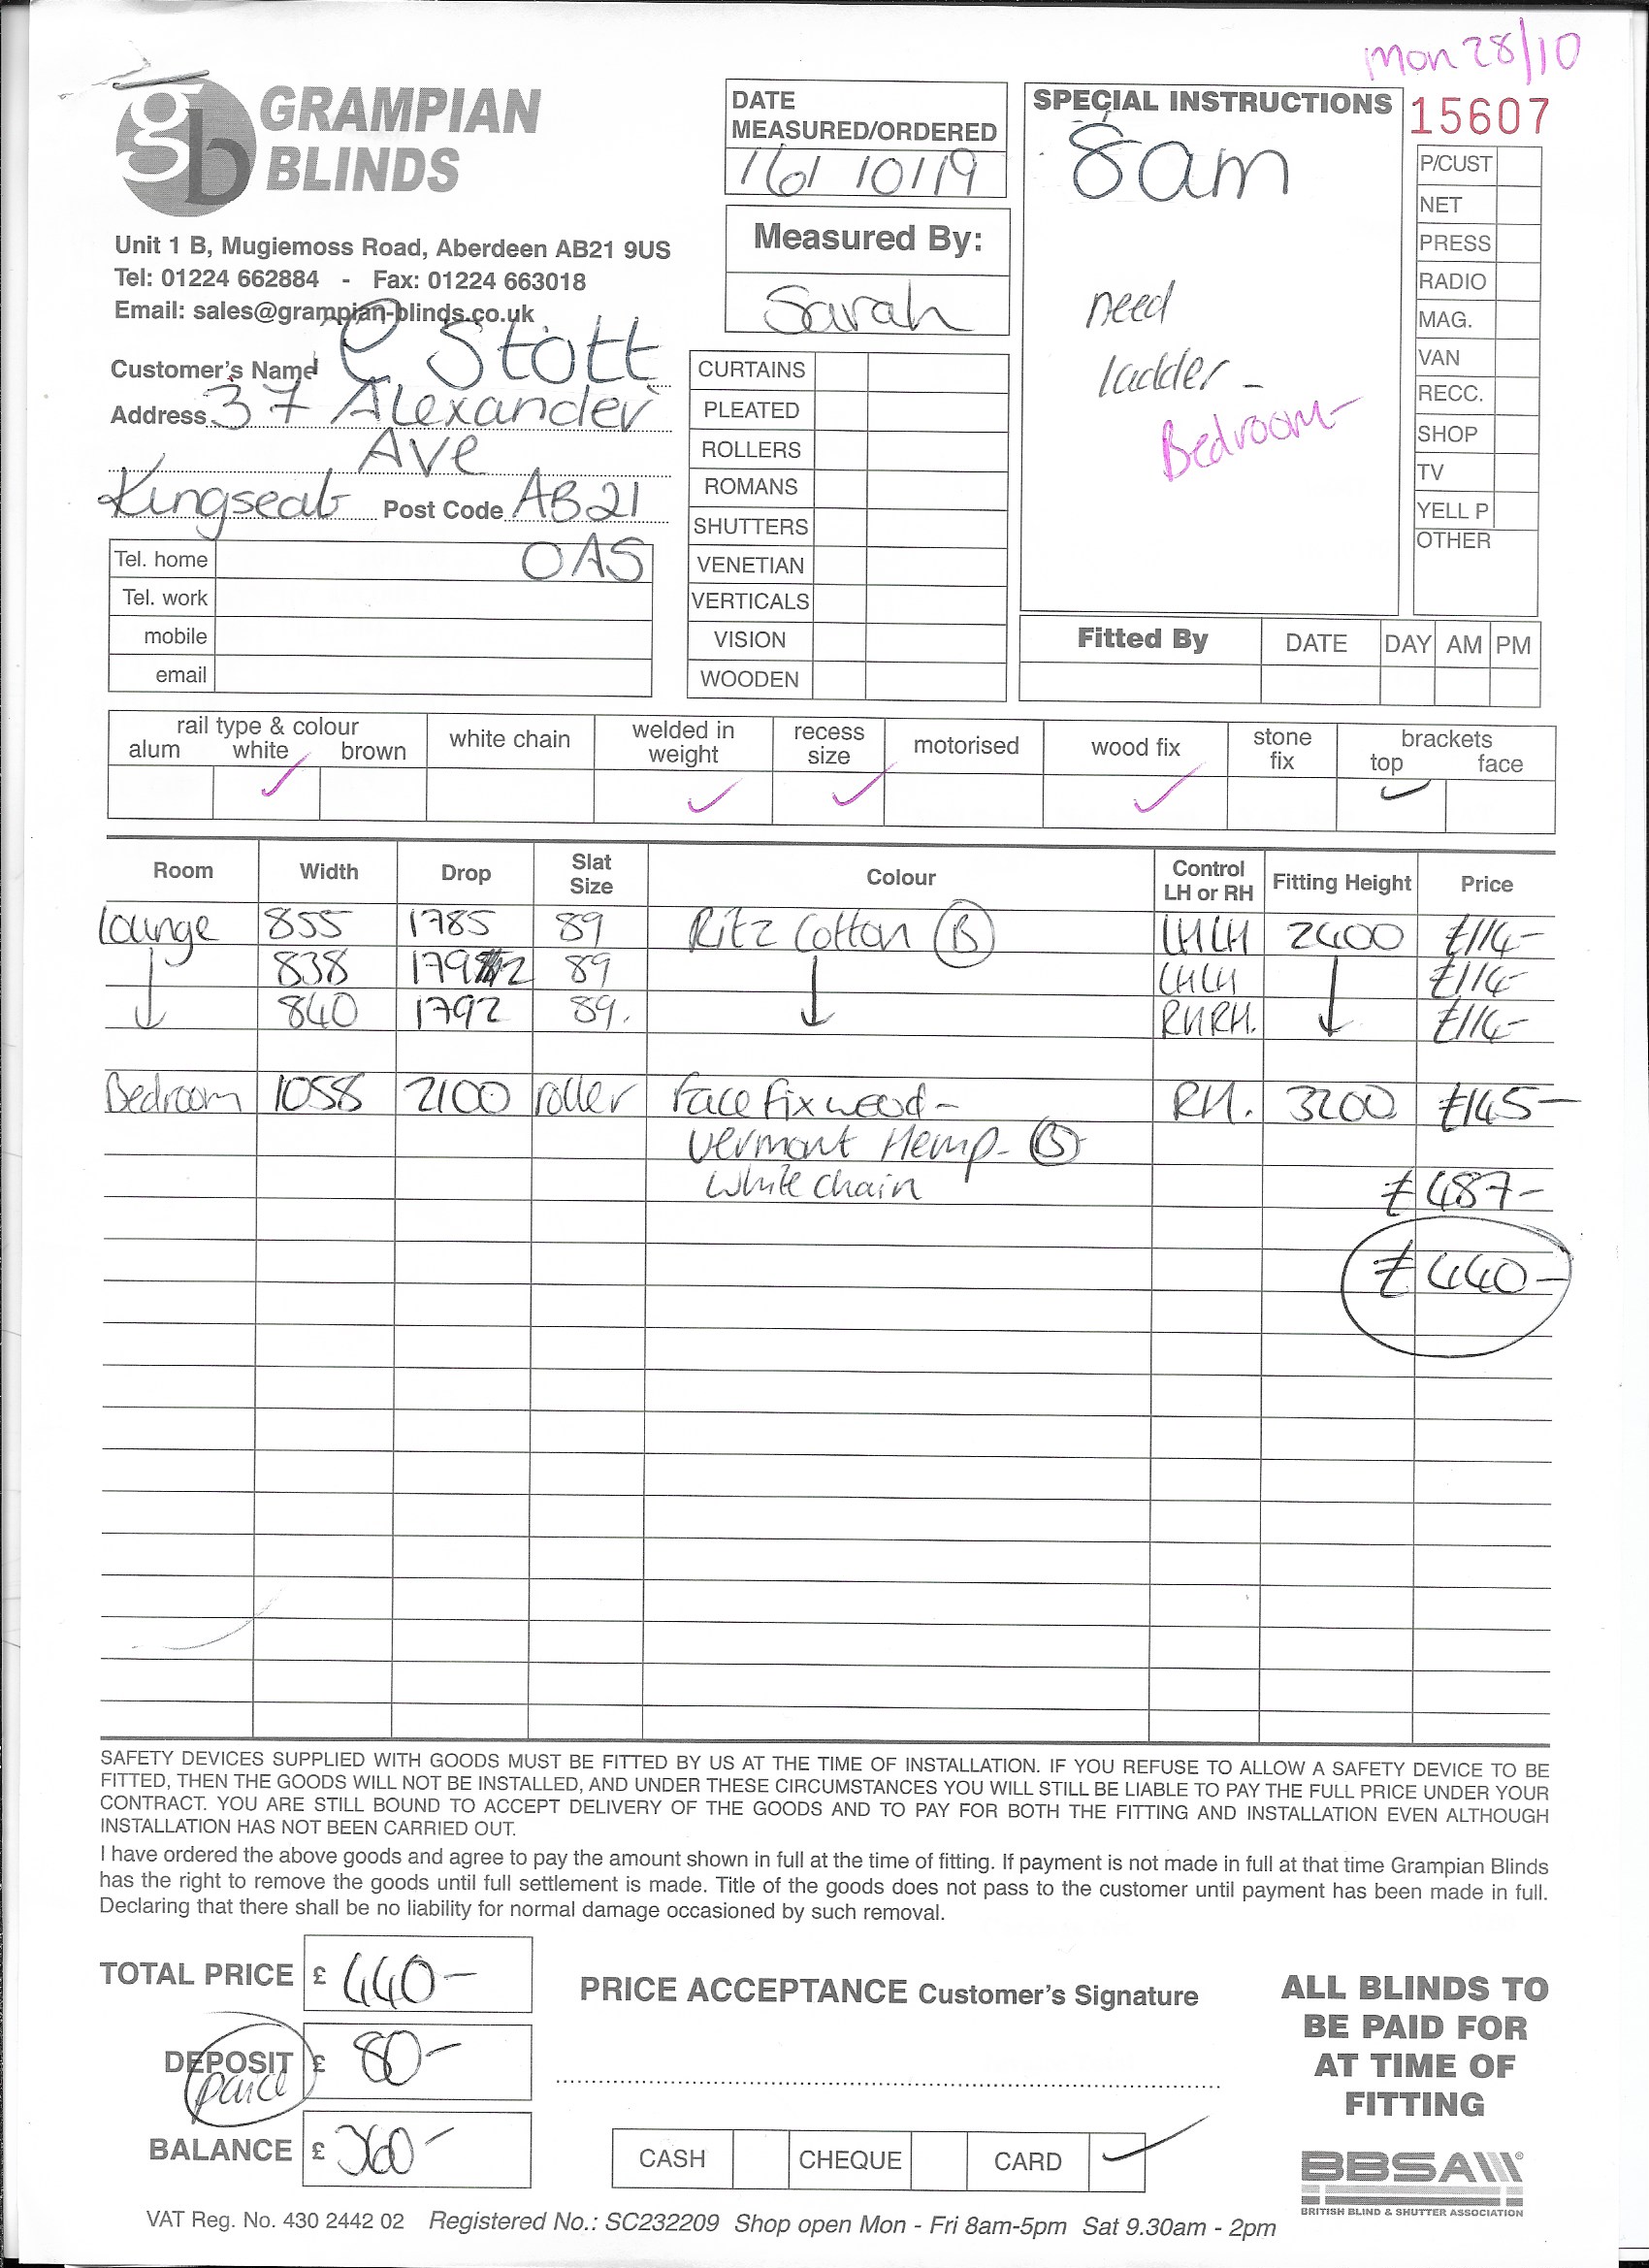 Mon 28/10
GRAMPIAN
BLINDS
Unit 1 B, Mugiemoss Road, Aberdeen AB21 9US
Tel: 01224 662884 - Fax: 01224 663018
Email: sales@grampian-blinds.co.uk
Customer's Name C Stott
Address 37 Alexander
Ave
Kingseat Post Code AB21
OAS
Tel. home
Tel. work
mobile
email
DATE
MEASURED/ORDERED
16/10/19
Measured By:
Sarah
CURTAINS
PLEATED
ROLLERS
ROMANS
SHUTTERS
VENETIAN
VERTICALS
VISION
WOODEN
SPECIAL INSTRUCTIONS
8am
need
ladder -
Bedroom-
15607
P/CUST
NET
PRESS
RADIO
MAG.
VAN
RECC.
SHOP
TV
YELL P
OTHER
Fitted By DATE DAY AM PM
rail type & colour
alum white ✓ brown
white chain
welded in
weight ✓
recess
size ✓
motorised
wood fix ✓
stone
fix
brackets
top ✓ face
Room Width Drop Slat Size Colour Control LH or RH Fitting Height Price
Lounge 855 1785 89 Ritz Cotton (B) LHLH 2400 £114-
↓ 838 1792 89 ↓ LHLH ↓ £114-
840 1792 89. RHRH. £114-
Bedroom 1058 2100 roller Face Fix wood - RH. 3200 £145-
Vermont Hemp - (B)
White chain
£487-
£440-
SAFETY DEVICES SUPPLIED WITH GOODS MUST BE FITTED BY US AT THE TIME OF INSTALLATION. IF YOU REFUSE TO ALLOW A SAFETY DEVICE TO BE
FITTED, THEN THE GOODS WILL NOT BE INSTALLED, AND UNDER THESE CIRCUMSTANCES YOU WILL STILL BE LIABLE TO PAY THE FULL PRICE UNDER YOUR
CONTRACT. YOU ARE STILL BOUND TO ACCEPT DELIVERY OF THE GOODS AND TO PAY FOR BOTH THE FITTING AND INSTALLATION EVEN ALTHOUGH
INSTALLATION HAS NOT BEEN CARRIED OUT.
I have ordered the above goods and agree to pay the amount shown in full at the time of fitting. If payment is not made in full at that time Grampian Blinds
has the right to remove the goods until full settlement is made. Title of the goods does not pass to the customer until payment has been made in full.
Declaring that there shall be no liability for normal damage occasioned by such removal.
TOTAL PRICE £ 440-
DEPOSIT £ 80-
paid
BALANCE £ 360-
PRICE ACCEPTANCE Customer's Signature
CASH CHEQUE CARD ✓
ALL BLINDS TO
BE PAID FOR
AT TIME OF
FITTING
BBSA
BRITISH BLIND & SHUTTER ASSOCIATION
VAT Reg. No. 430 2442 02 Registered No.: SC232209 Shop open Mon - Fri 8am-5pm Sat 9.30am - 2pm